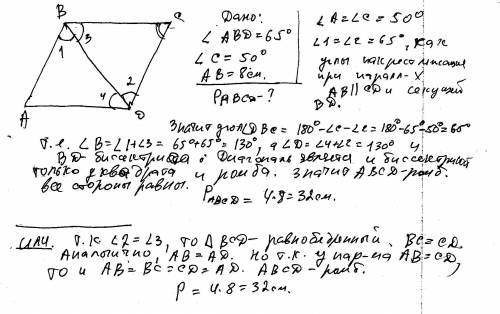 B
C
1
3
2
4
A
D
Дано:
∠ABD=65°
∠C=50°
AB=8см.
P ABCD-?
∠A=∠C=50°
∠1=∠2=65°, как
углы накрест лежащие
при парал-х
AB||CD и секущей
BD.
Значит угол DBC= 180°-∠C-∠2=180°-65°-50°=65°
т.е. ∠B=∠1+∠3= 65°+65°=130°, а ∠D=∠4+∠2=130° и
BD-биссектриса. Диагональ является и биссектрисой
только у квадрата и ромба. Значит ABCD-ромб.
все стороны равны.
P ABCD = 4·8=32см.
ИЛИ. Т.к ∠2=∠3, то △BCD- равнобедренный. BC=CD.
Аналогично, AB=AD. Но т.к. у пар-ма AB=CD,
то и AB=BC=CD=AD. ABCD-ромб.
P=4·8=32см.